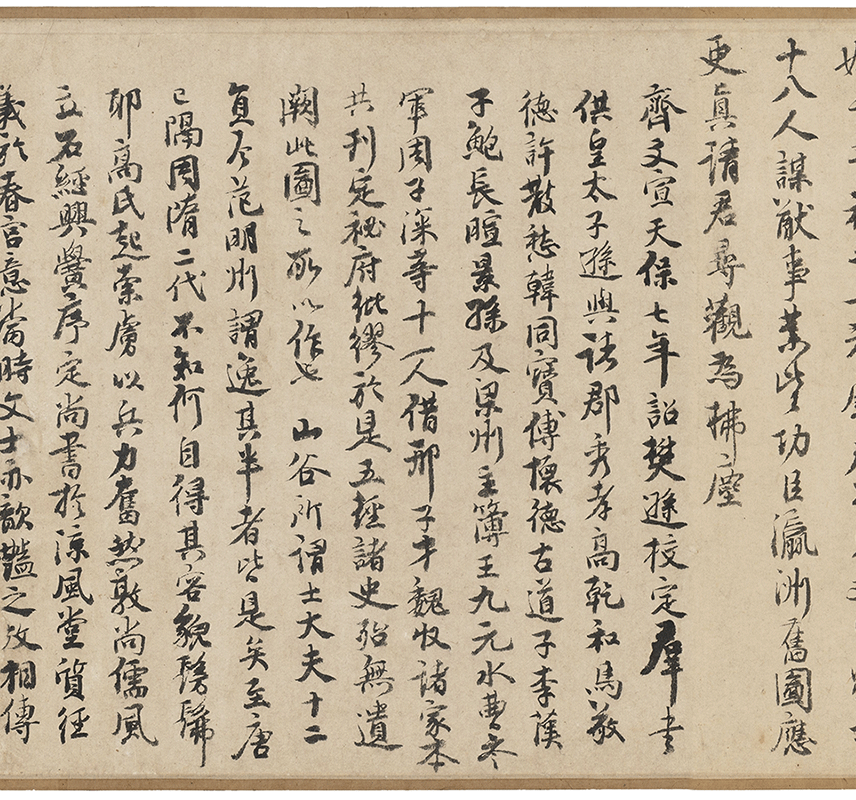 十八人謀猷事業望功臣瀛洲舊圖應
更真請君尋觀為拂塵
齊文宣天保七年詔樊遜校定羣書
供皇太子遜與諸郡秀孝高乾和馬敬
德許散愁韓同寶傅懷德古道子李漢
子鮑長暄景孫及梁州主簿王九元水曹參
軍周子深等十一人借邢子才魏收諸家本
共刊定秘府紕繆於是五經諸史殆無遺
闕此圖之所以作也 山谷所謂士大夫十二
員今范明州謂逸其半者皆是矣至唐
已隔周隋二代不知何自得其容貌髣髴
耶高氏起索虜以兵力奮然敦尚儒風
立石經興黌序定尚書於涼風堂質經
義於春宮意當時文士亦歆豔之故相傳